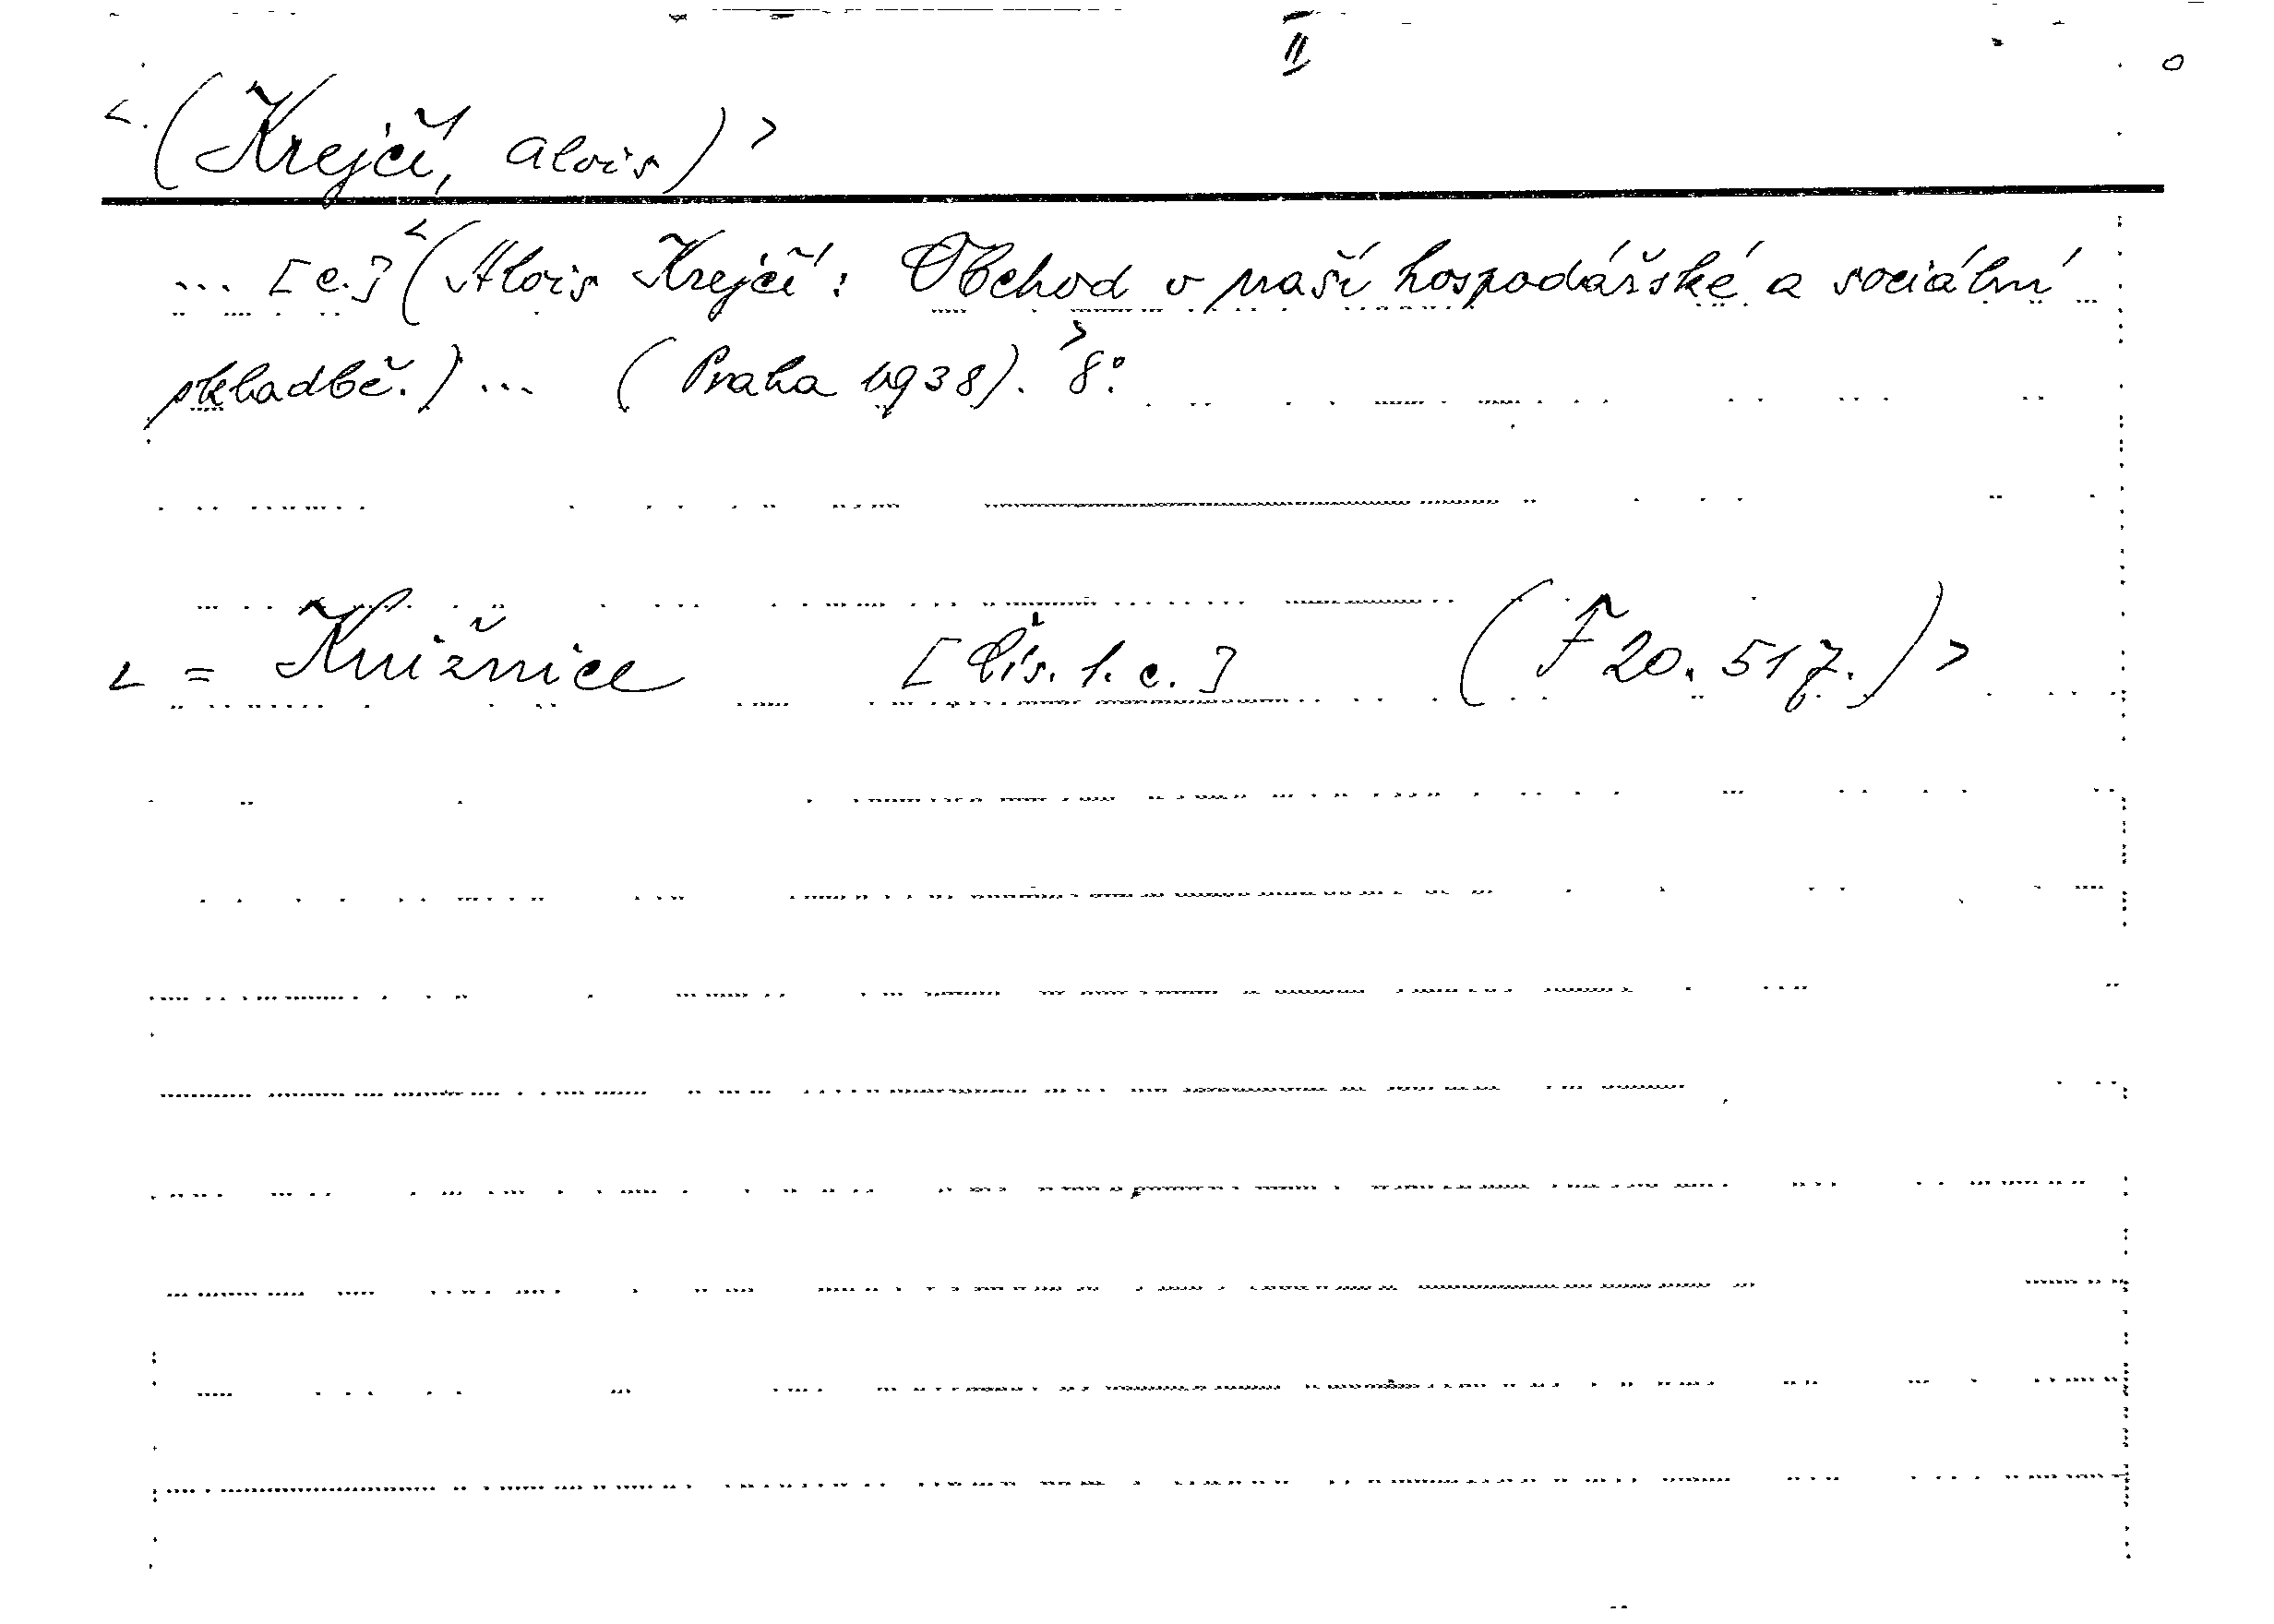 II
<(Krejčí, Alois)>
... [c.] <(Alois Krejčí: Obchod v naší hospodářské a sociální
skladbě.) ... (Praha 1938).> 8°.
< = Knižnice [Čís. 1. c.] (F 20.517.)>